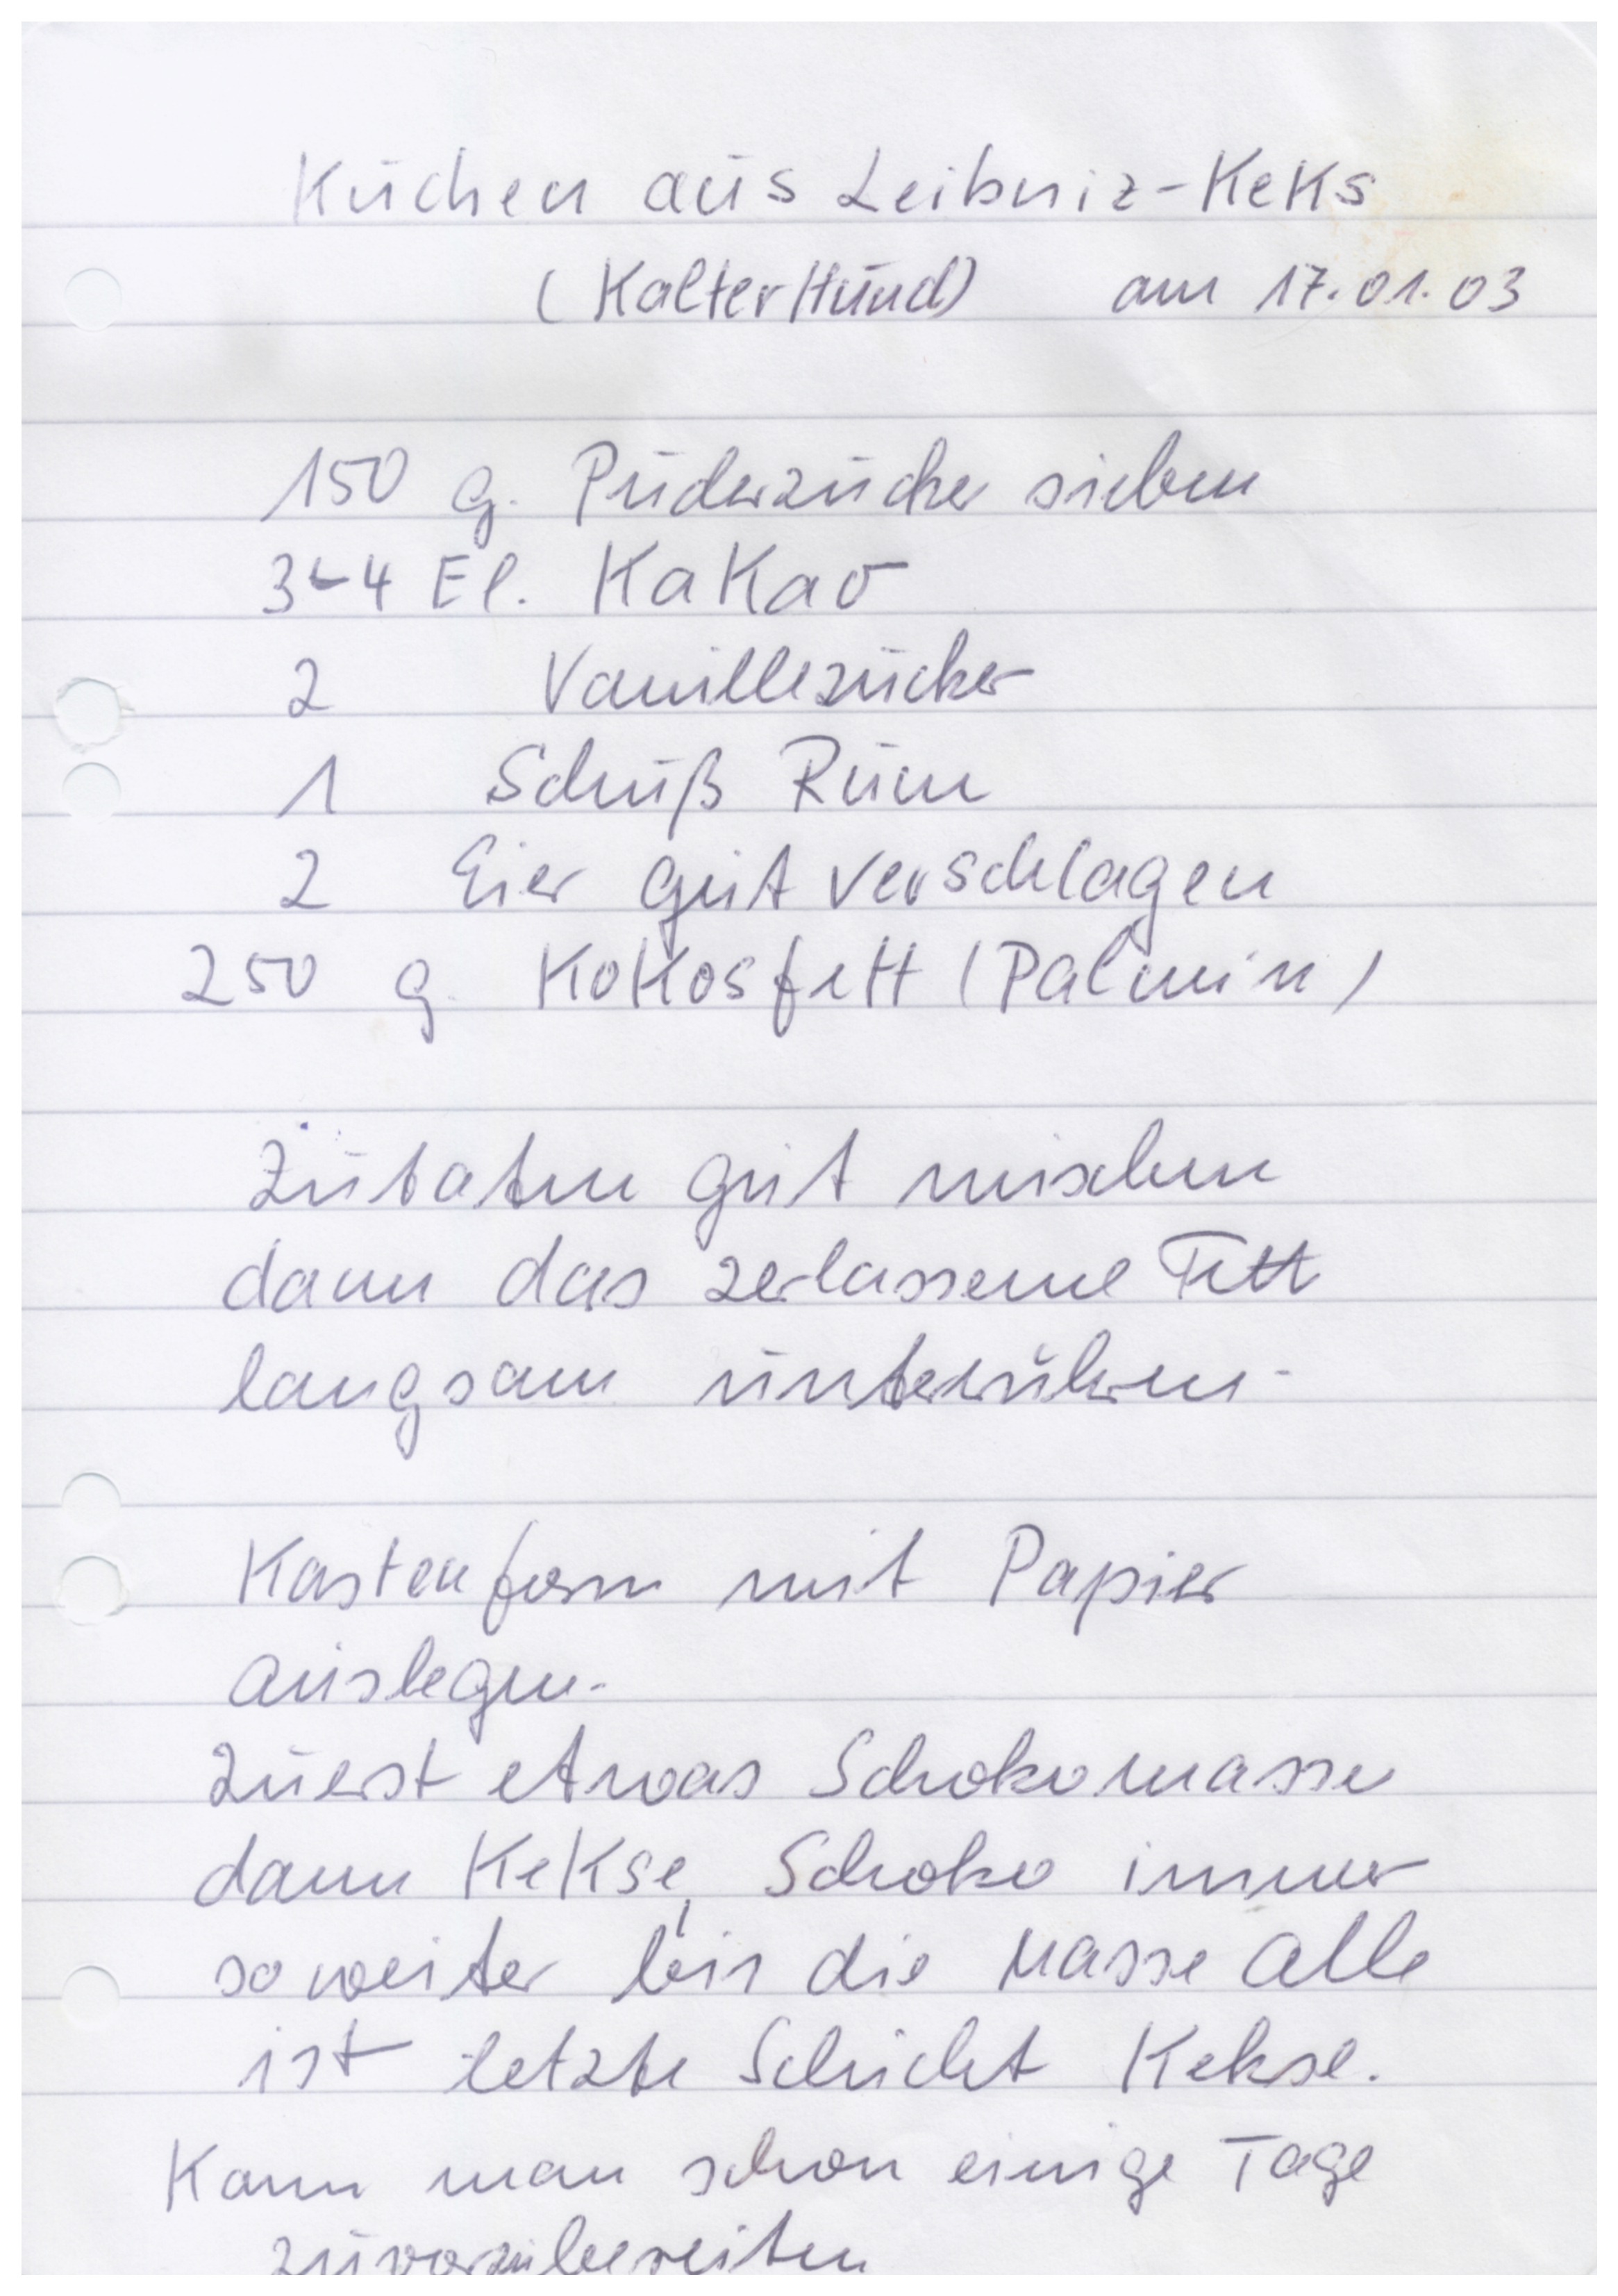 Kuchen aus Leibniz-Keks
(Kalter Hund) am 17.01.03
150 g. Puderzucker sieben
3-4 El. Kakao
2 Vanillezucker
1 Schuß Rum
2 Eier gut verschlagen
250 g. Kokosfett (Palmin)
Zutaten gut mischen
dann das zerlassene Fett
langsam unterrühren.
Kastenform mit Papier
auslegen.
Zuerst etwas Schokomasse
dann Kekse, Schoko immer
so weiter bis die Masse alle
ist letzte Schicht Kekse.
Kann man schon einige Tage
zuvorzubereiten